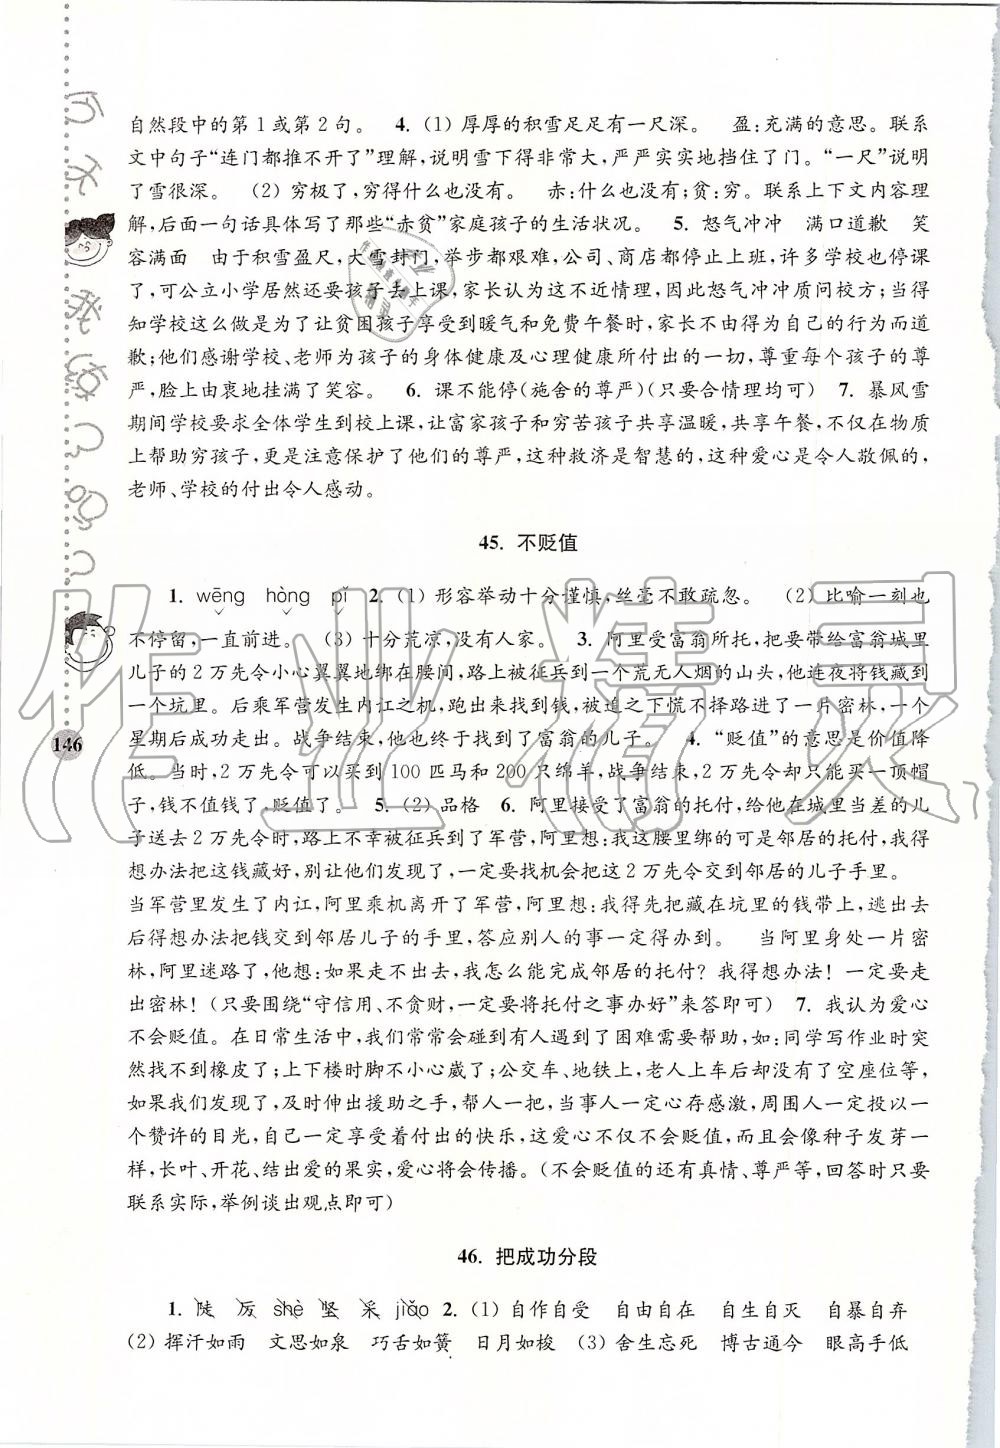 自然段中的第 1 或第 2 句。 4. (1) 厚厚的积雪足足有一尺深。 盈:充满的意思。联系
文中句子“连门都推不开了”理解,说明雪下得非常大,严严实实地挡住了门。“一尺”说明
了雪很深。 (2) 穷极了,穷得什么也没有。 赤:什么也没有;贫:穷。联系上下文内容理
解,后面一句话具体写了那些“赤贫”家庭孩子的生活状况。 5. 怒气冲冲 满口道歉 笑
容满面 由于积雪盈尺,大雪封门,举步都艰难,公司、商店都停止上班,许多学校也停课
了,可公立小学居然还要孩子去上课,家长认为这不近情理,因此怒气冲冲质问校方;当得
知学校这么做是为了让贫困孩子享受到暖气和免费午餐时,家长不由得为自己的行为而道
歉;他们感谢学校、老师为孩子的身体健康及心理健康所付出的一切,尊重每个孩子的尊
严,脸上由衷地挂满了笑容。 6. 课不能停(施舍的尊严)(只要合情理均可) 7. 暴风雪
期间学校要求全体学生到校上课,让富家孩子和穷苦孩子共享温暖,共享午餐,不仅在物质
上帮助穷孩子,更是注意保护了他们的尊严,这种救济是智慧的,这种爱心是令人敬佩的,
老师、学校的付出令人感动。
45. 不贬值
1. wēng hòng pǐ 2. (1) 形容举动十分谨慎,丝毫不敢疏忽。 (2) 比喻一刻也
不停留,一直前进。 (3) 十分荒凉,没有人家。 3. 阿里受富翁所托,把要带给富翁城里
儿子的 2 万先令小心翼翼地绑在腰间,路上被征兵到一个荒无人烟的山头,他连夜将钱藏到
一个坑里。后乘军营发生内讧之机,跑出来找到钱,被追之下慌不择路进了一片密林,一个
星期后成功走出。战争结束,把钱完整地交到了富翁的儿子。 4. “贬值”的意思是价值降
低。当时,2 万先令可以买到 100 匹马和 200 只绵羊,战争结束,2 万先令却只能买一顶帽
子,钱不值钱了,贬值了。 5. (2) 品格 6. 阿里接受了富翁的托付,给他在城里当差的儿
子送去 2 万先令时,路上不幸被征兵到了军营,阿里想:我这腰里绑的可是邻居的托付,我得
想办法把这钱藏好,别让他们发现了,一定要找机会把这 2 万先令交到邻居的儿子手里。
当军营里发生了内讧,阿里乘机离开了军营,阿里想:我得先把藏在坑里的钱带上,逃出去
后得想办法把钱交到邻居儿子的手里,答应别人的事一定得办到。 当阿里身处一片密
林,阿里迷路了,他想:如果走不出去,我怎么能完成邻居的托付? 我得想办法! 一定要走
出密林! (只要围绕“守信用、不贪财,一定要将托付之事办好”来答即可) 7. 我认为爱心
不会贬值。在日常生活中,我们常常会碰到有人遇到了困难需要帮助,如:同学写作业时突
然找不到橡皮了;上下楼时脚不小心崴了;公交车、地铁上,老人上车后却没有了空座位等,
如果我们发现了,及时伸出援助之手,帮人一把,当事人一定心存感激,周围人一定投以一
个赞许的目光,自己一定享受着付出的快乐,这爱心不仅不会贬值,而且会像种子发芽一
样,长叶、开花、结出爱的果实,爱心将会传播。(不会贬值的还有真情、尊严等,回答时只要
联系实际,举例谈出观点即可)
146
46. 把成功分段
1. 陡 厉 shè 坚 采 jiǎo 2. (1) 自作自受 自由自在 自生自灭 自暴自弃
(2) 挥汗如雨 文思如泉 巧舌如簧 日月如梭 (3) 舍生忘死 博古通今 眼高手低
作业精灵